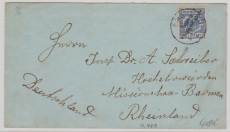 Herrn
Insp. Dr. A. Schreiber
Missionshaus Barmen
Deutschland
Rheinland